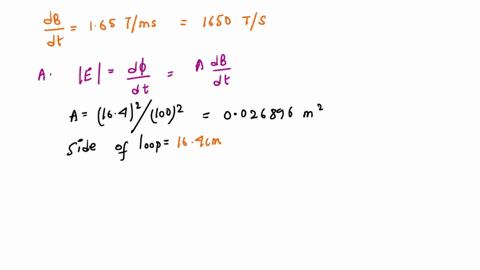 dB/dt = 1.65 T/ms = 1650 T/S
A. |E| = dϕ/dt = A dB/dt
A = (16.4)²/(100)² = 0.026896 m²
Side of loop = 16.4cm